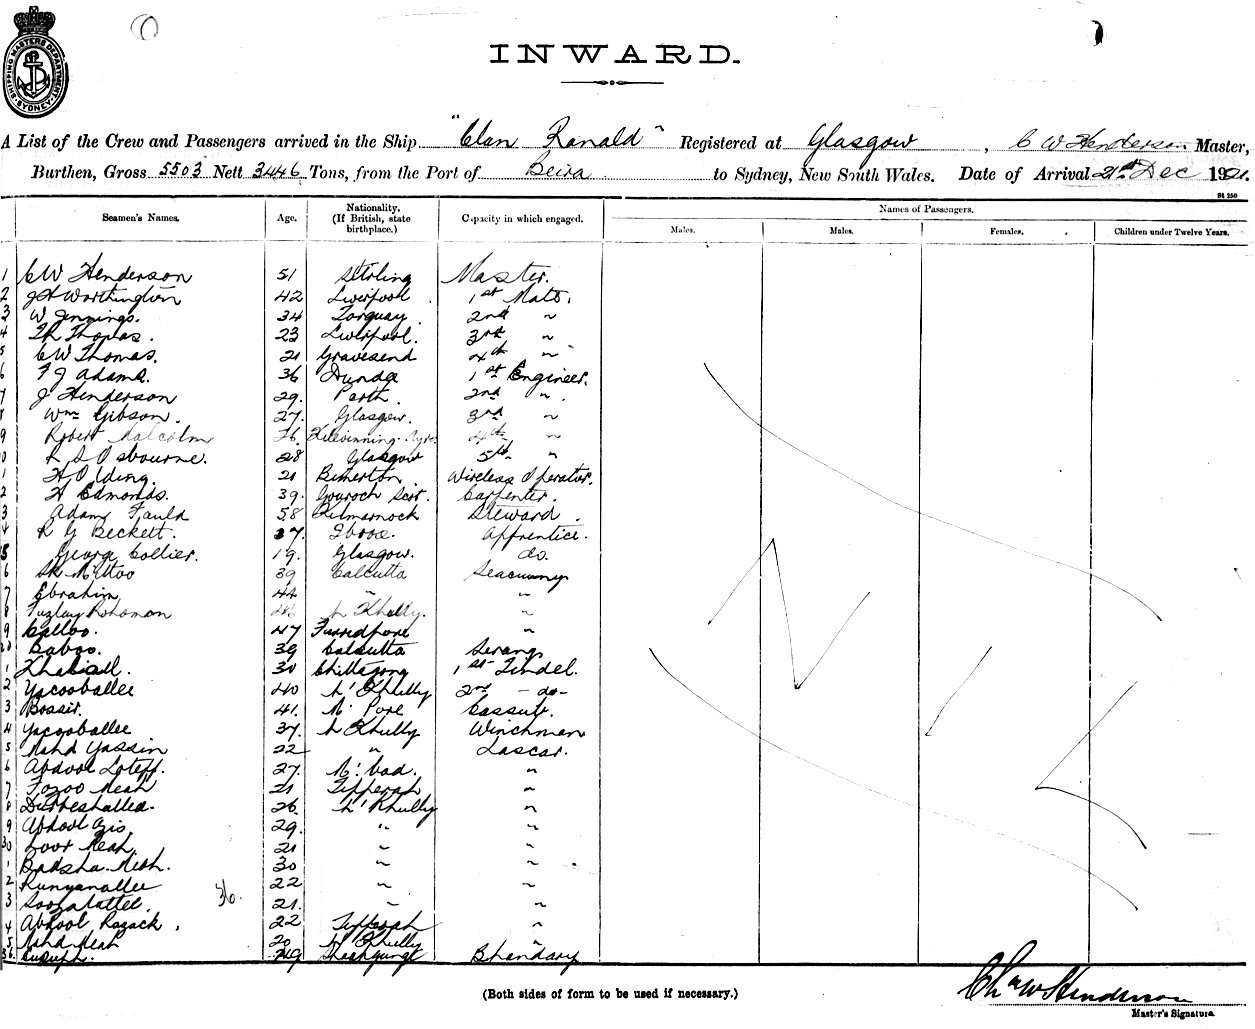 SHIPPING MASTERS DEPARTMENT SYDNEY
INWARD.
A List of the Crew and Passengers arrived in the Ship "Clan Ranald" Registered at Glasgow, C W Henderson Master,
Burthen, Gross 5503 Nett 3446 Tons, from the Port of Beira to Sydney, New South Wales. Date of Arrival 21st Dec 1921.
St 250
Seamen's Names. Age. Nationality. (If British, state birthplace.) Capacity in which engaged. Names of Passengers.
Males. Males. Females. Children under Twelve Years.
1 C W Henderson 51 Stirling Master.
2 J H Worthington 42 Liverpool 1st Mate.
3 W Jennings. 34 Torquay. 2nd "
4 Th Thomas. 23 Liverpool. 3rd "
5 C W Thomas. 21 Gravesend 4th "
6 F J Adams. 36 Dundee 1st Engineer.
7 J Henderson 29. Perth. 2nd "
8 Wm Gibson. 27. Glasgow. 3rd "
9 Robert Malcolm 26. Kilwinning 4th "
0 R S Osbourne. 28 Glasgow 5th "
1 H Olding. 21 Bemerton Wireless Operator.
2 H Edmonds. 39. Gouroch Scot. Carpenter.
3 Adam Fauld 58 Kilmarnock Steward.
4 R G Beckett. 17. Ibrox. Apprentice.
5 George Collier. 19. Glasgow. do.
6 Sk Mittoo 39 Calcutta Seacunny
7 Ebrahim 44 " "
8 Fuzlay Rohoman N Khully. "
9 Calloo. 47 Furridpore "
20 Baboo. 39 Calcutta Serang
1 Khaliall. 30 Chittagong 1st Tindel.
2 Yacooballee 40 N' Khully 2nd -do-
3 Bossir. 41. M. Pore Cassub.
4 Yacooballee 37. N Khully Winchman
5 Mahd Yassin 22 " Lascar.
6 Abdool Loteff. 27. M. bad. "
7 Fozoo Meah 21 Tipperah "
8 26. N' Khully "
9 Abdool Azis. 29. " "
30 Noor Meah. 21 " "
1 Badsha Meah. 30 " "
2 Runyanallee 22 " "
3 21. " "
36.
4 Abdool Razack. 22 Tipperah "
5 Mahd Meah 20 N Khully "
36. Bhandary
(Both sides of form to be used if necessary.)
Chas W Henderson
Master's Signature.